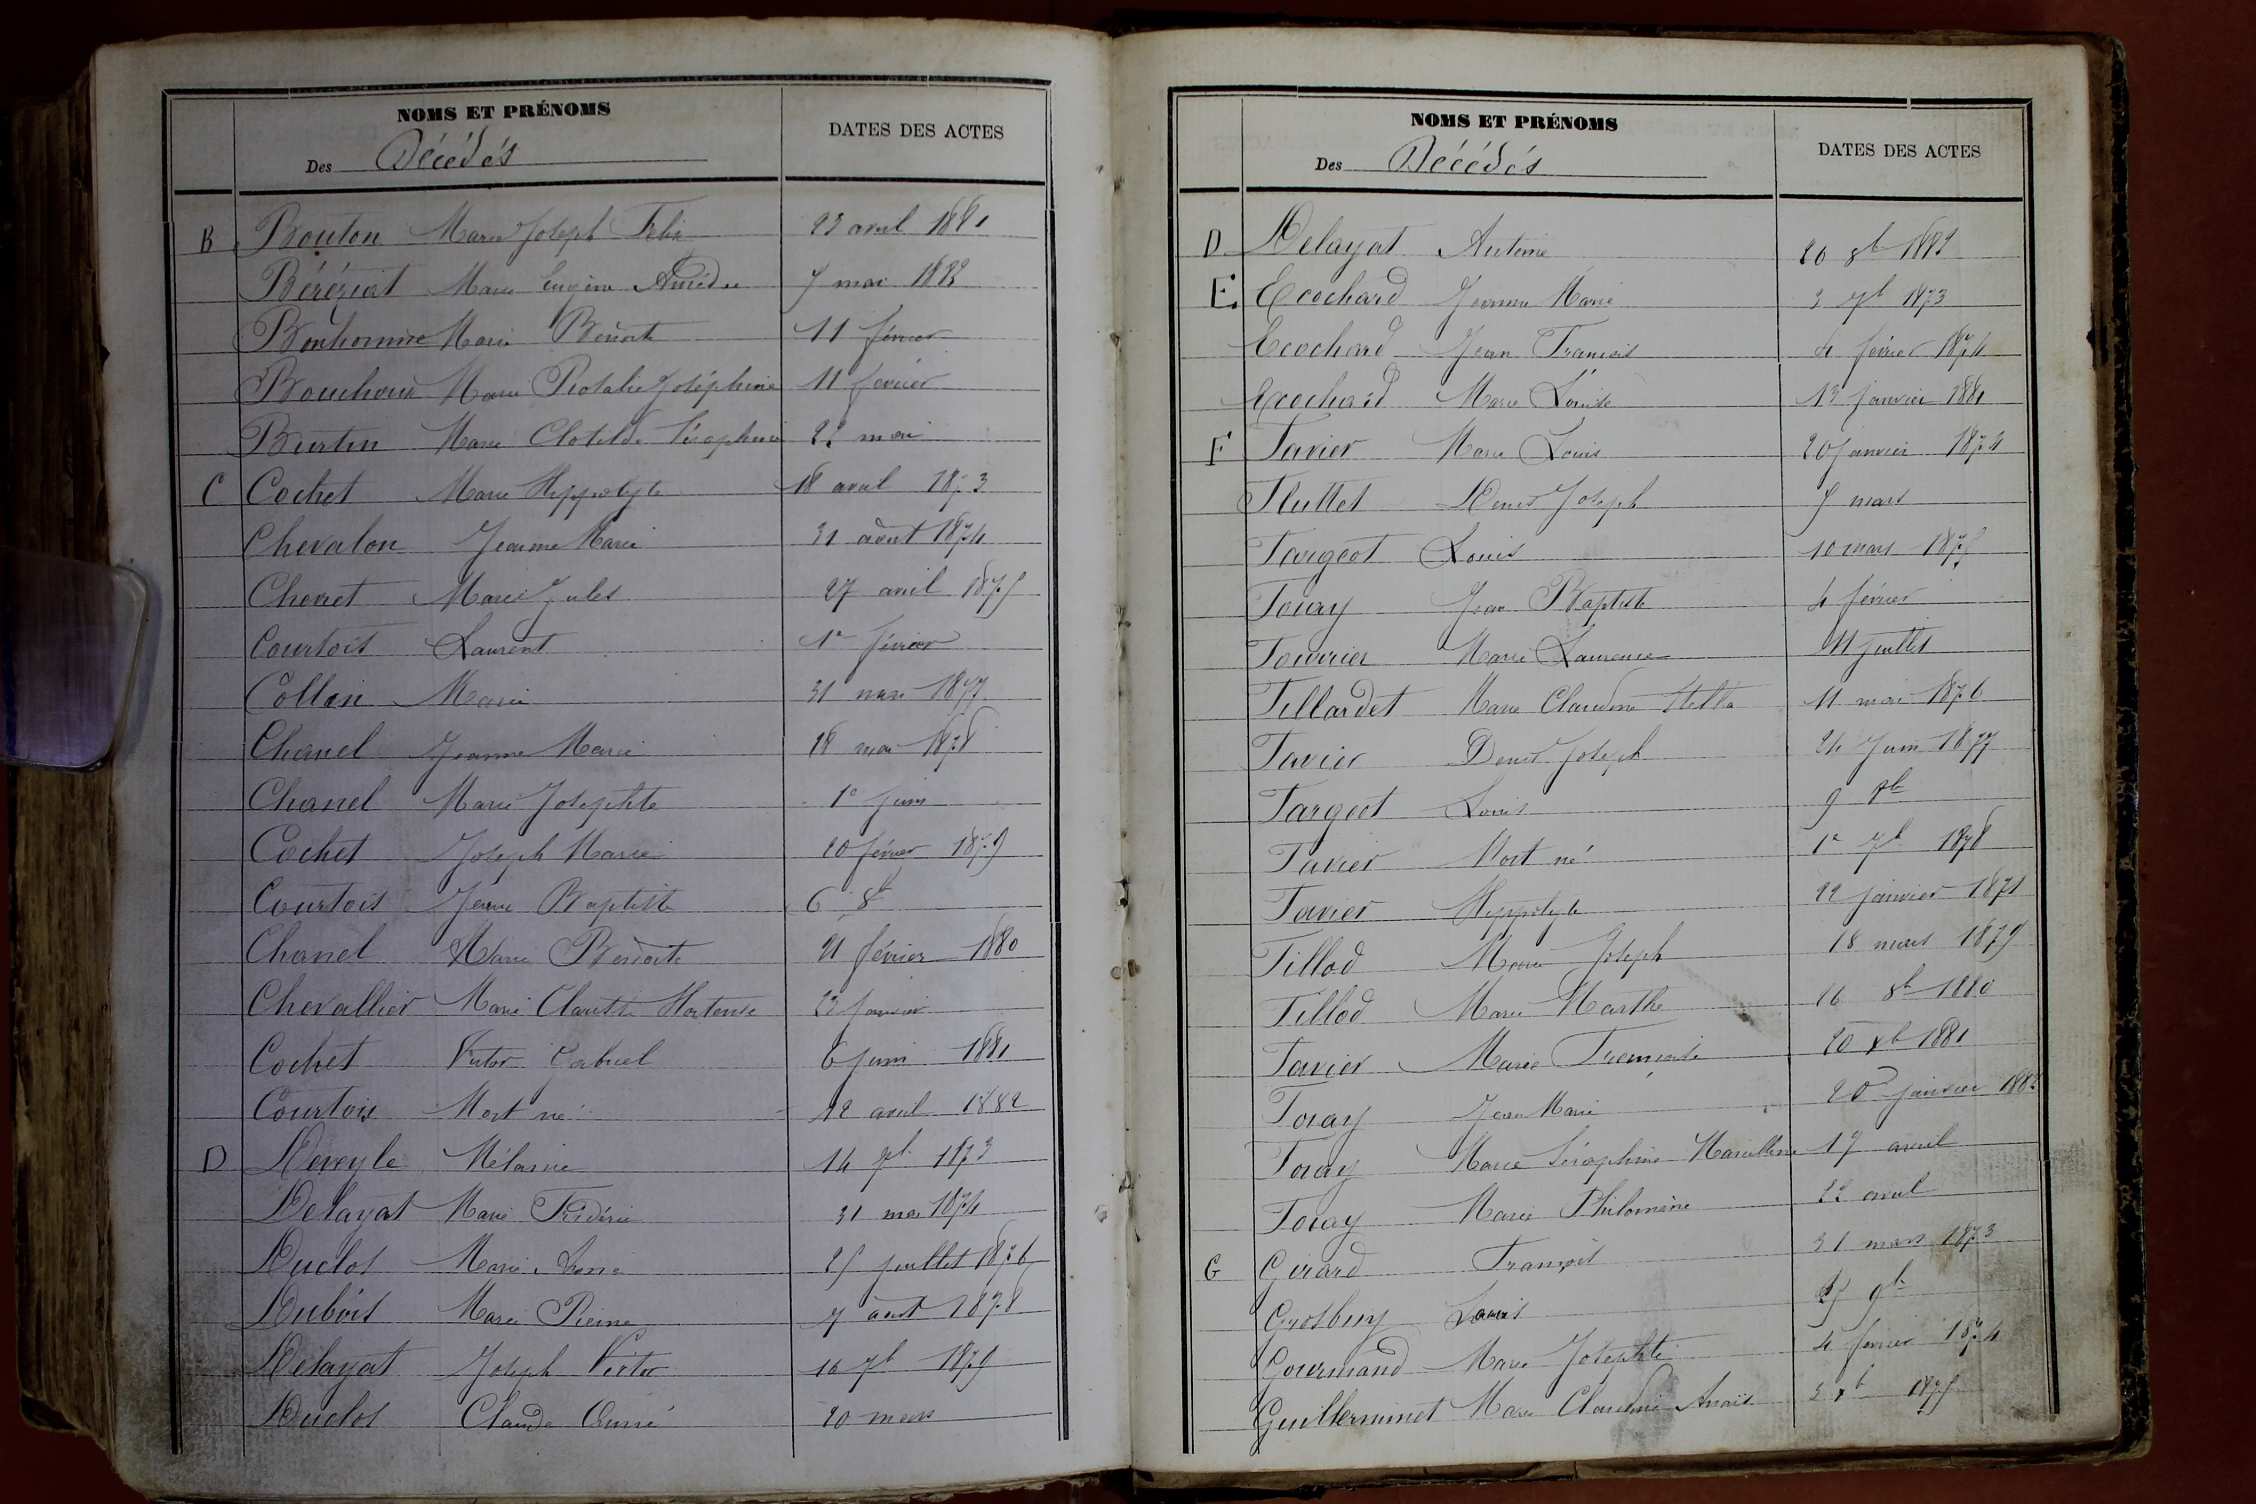 NOMS ET PRÉNOMS
Des Décédés
DATES DES ACTES
B Bouton Marie Joseph Félix 23 avril 1881
Béréziat Marie Eugène Amédée 7 mai 1882
Bonhomme Marie Benoite 11 février
Bouchoux Marie Rosalie Joséphine 11 février
Burtin Marie Clotilde Séraphine 22 mai
C Cochet Marie Hippolyte 18 avril 1873
Chevalon Jeanne Marie 31 août 1874
Chevret Marie Jules 27 avril 1875
Courtois Laurent 1er février
Collin Marie 31 mars 1877
Chanel Jeanne Marie 18 mai 1878
Chanel Marie Josephte 1er juin
Cochet Joseph Marie 20 février 1879
Courtois Jean Baptiste 6 8b
Chanel Marie Benoite 21 février 1880
Chevallier Marie Claudte Hortense 23 janvier
Cochet Victor Gabriel 6 juin 1881
Courtois Mort né 12 avril 1882
D Deveyle Mélanie 14 9b 1873
Delayat Marie Frédéric 31 mai 1874
Duclos Marie 25 juillet 1876
Dubois Marie Pierre 7 août 1878
Delayat Joseph Victor 16 7b 1879
Duclos Claude Aimé 20 mars
NOMS ET PRÉNOMS
Des Décédés
DATES DES ACTES
D Delayat Antoine 20 8b 1882
E. Ecochard Jeanne Marie 3 7b 1873
Ecochard Jean François 4 février 1874
Ecochard Marie Louise 13 janvier 1881
F Favier Marie Louis 20 janvier 1874
Fluttet Denis Joseph 7 mars
Fargeot Louis 10 mars 1875
Foray Jean Baptiste 4 février
Fourrier Marie Laurence 11 juillet
Fillardet Marie Claudine Stella 11 mai 1876
Favier Denis Joseph 24 Juin 1877
Fargeot Louis 9 8b
Favier Mort né 1er 7b 1878
Favier Hippolyte 22 janvier 1871
Fillod Marie Joseph 18 mars 1879
Fillod Marie Marthe 26 8b 1880
Favier Marie 20 xb 1881
Foray Jean Marie 20 janvier 1882
Foray Marie Séraphine Marcelline 17 avril
Foray Marie Philomène 22 avril
G Girard François 31 mars 1873
Grosbuy Louis 25 9b
Gourmand Marie Josephte 4 février 1874
Guillerminet Marie Claudine Anaïs 3 xb 1875